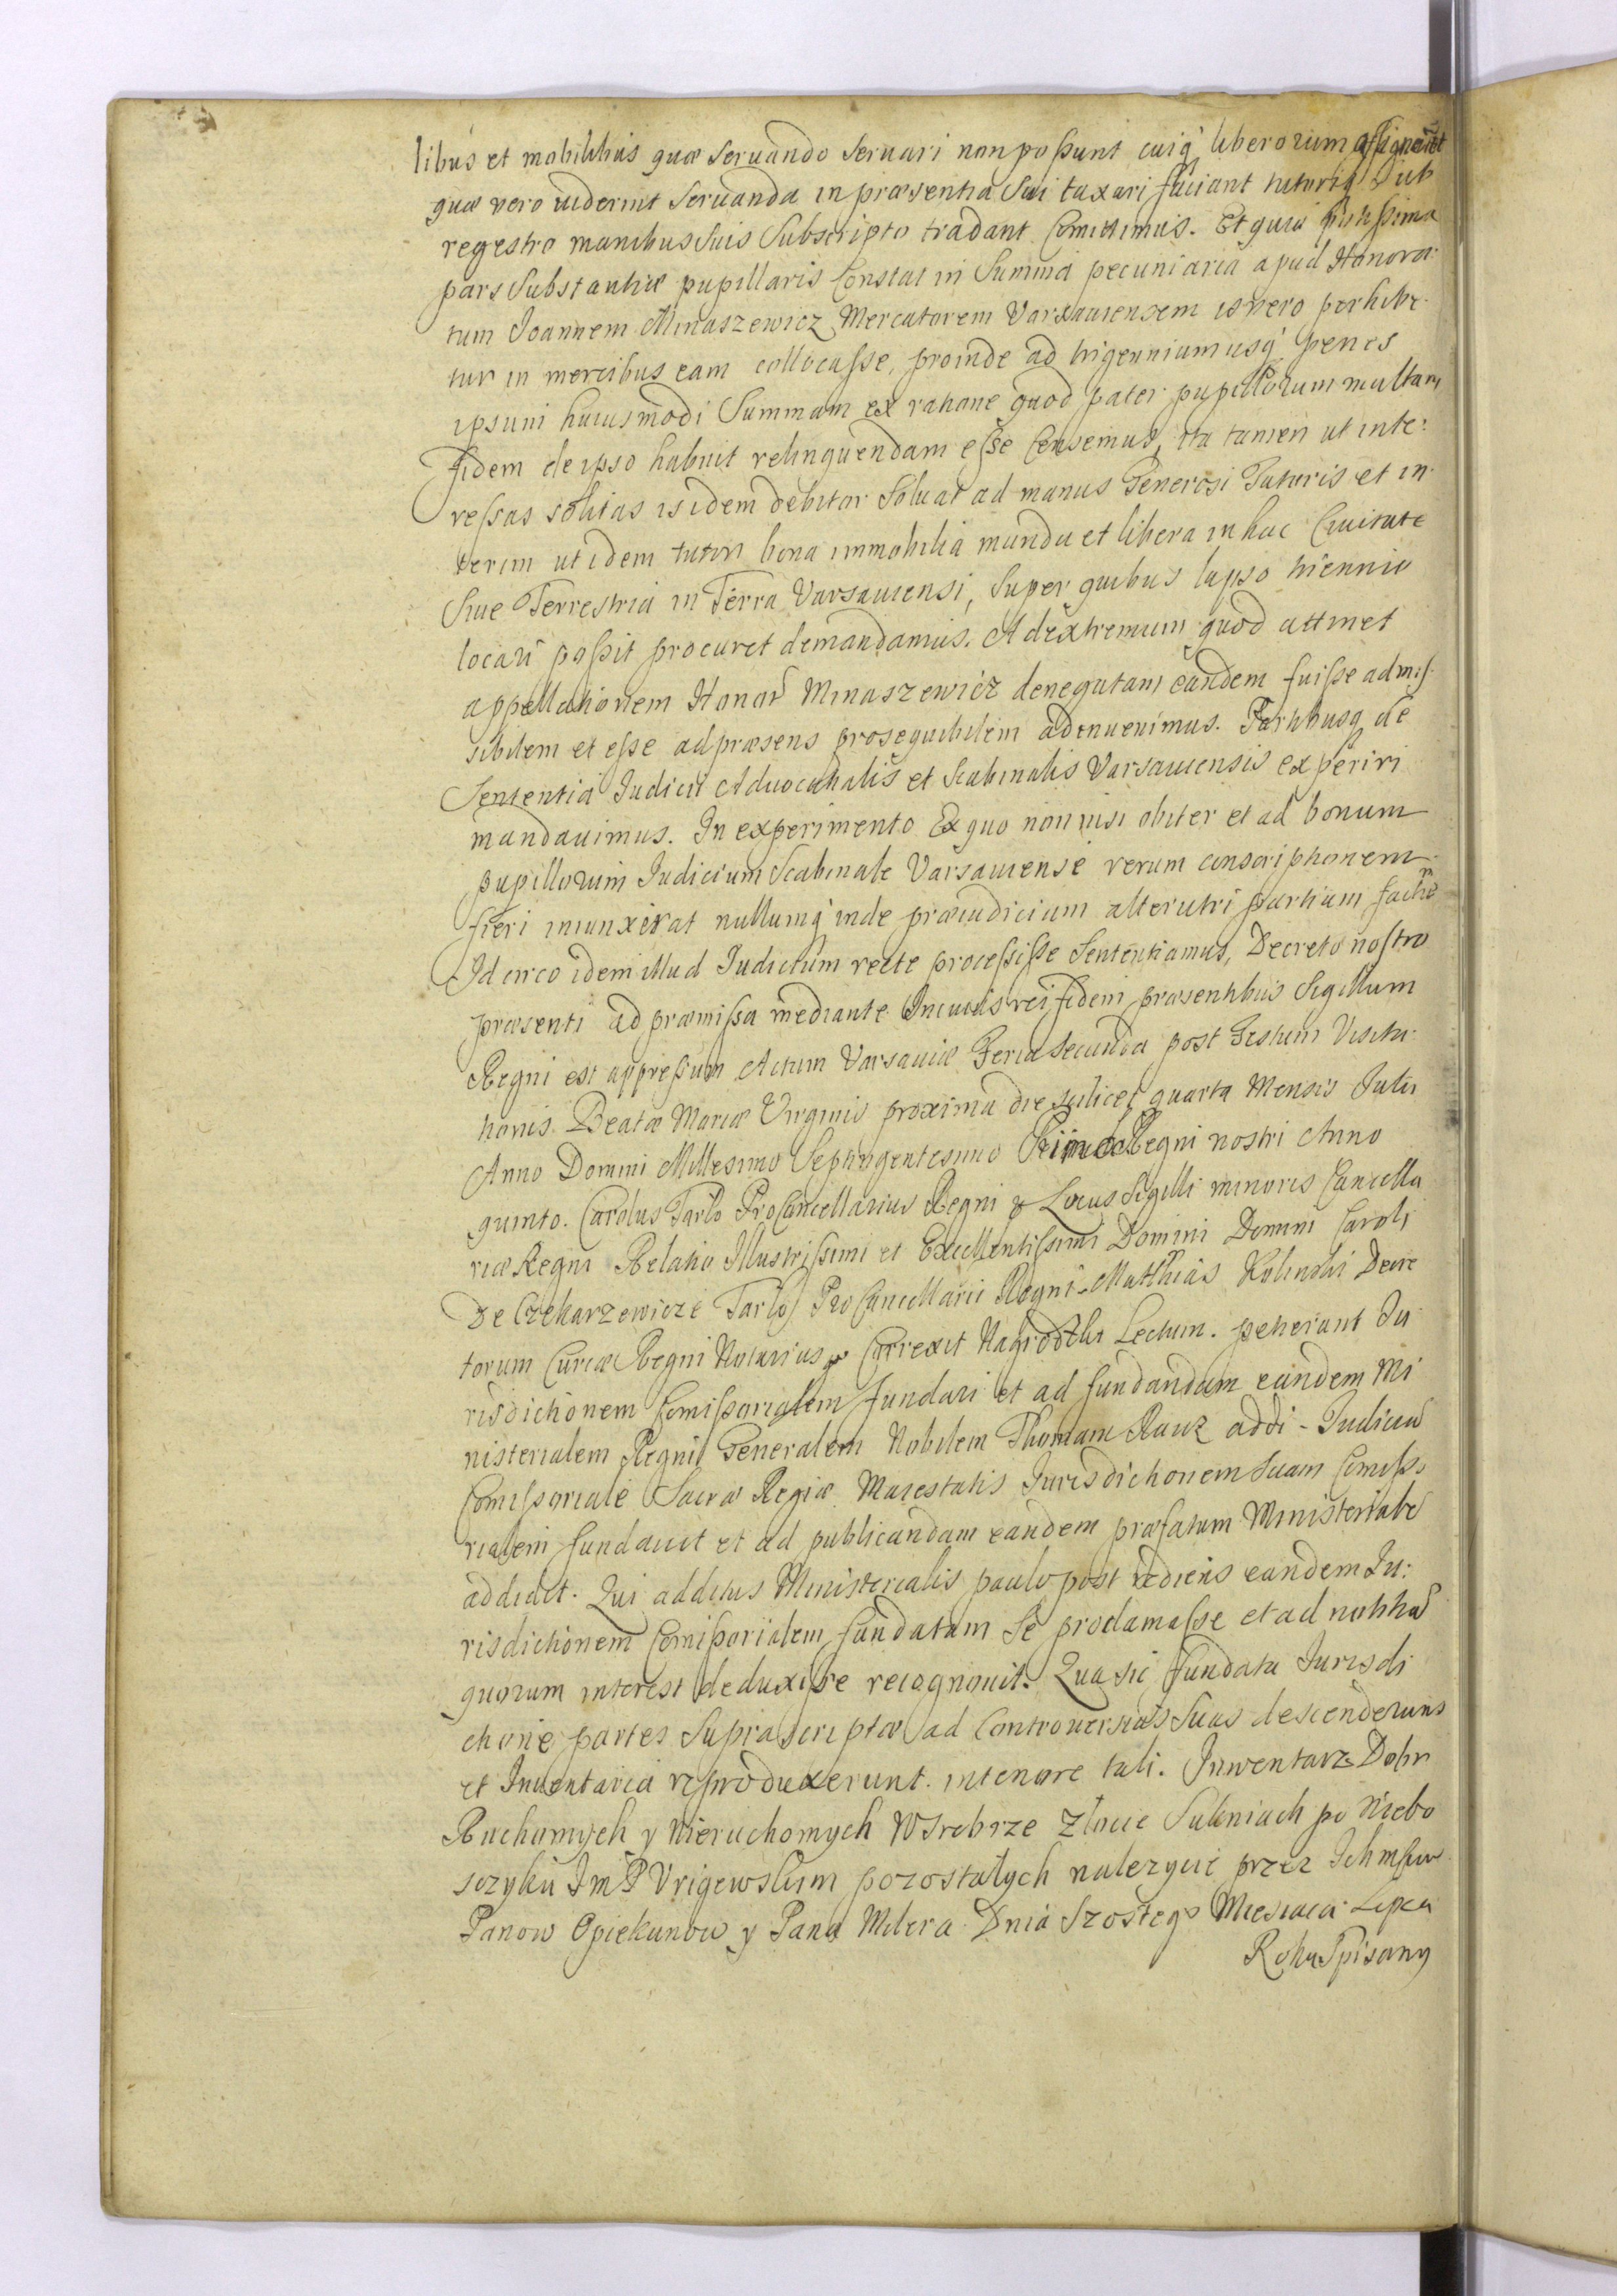 libus et mobilibus quæ seruando seruari non possunt cuiq liberorum assignent
quæ vero uiderint seruanda in præsentia sui taxari faciant tutoriq sub
regestro manibus suis subscripto tradant Comittimus. Et quia potissima
pars substantiæ pupillaris Constat in Summa pecuniaria apud Honora-
tum Joannem Minaszewicz Mercatorem Varsauiensem is vero perhibe-
tur in mercibus eam collocasse, proinde ad trigennium usq penes
ipsum huiusmodi Summam ex ratione quod pater pupillorum multam
fidem de ipso habuit relinquendam esse Censemus, ita tamen ut inte-
ressas solitas is idem debitor soluat ad manus Generosi Tutoris et in-
terim ut idem tutor bona immobilia munda et libera in hac Ciuitate
Siue Terrestria in Terra Varsauiensi, super quibus lapso triennio
locari possit procuret demandamus. Ad extremum quod attinet
appellationem Honor Minaszewicz denegatam eandem fuisse admis-
sibilem et esse ad præsens prosequibilem adinuenimus. Partibusq de
Sententia Judicii Aduocatialis et Scabinalis Varsauiensis experiri
mandauimus. In experimento Ex quo non nisi obiter et ad bonum
pupillorum Judicium Scabinale Varsauiense rerum conscriptionem
fieri iniunxerat nullumq inde præiudicium alterutri partium factum
Id circo idem illud Judicium recte processisse Sententiamus, Decreto nostro
præsenti ad præmissa mediante In cuius rei fidem præsentibus Sigillum
Regni est appressum Actum Varsauiæ Feria secunda post Festum Visita-
tionis Beatæ Mariæ Virginis proxima die scilicet quarta Mensis Julii
Anno Domini Millesimo Septingentesimo Primo Regni nostri Anno
quinto. Carolus Tarło ProCancellarius Regni Locus Sigilli minoris Cancella
riæ Regni Relatio Illustrissimi et Excellentissimi Domini Domini Caroli
De Czekarzewicze Tarło ProCancellarii Regni Matthias Kolinski Decre
torum Curiæ Regni Notarius Correxit Lectum. petierunt Ju
risdictionem Comissorialem fundari et ad fundandam eandem Mi
nisterialem Regni Generalem Nobilem Thomam Rauz addi - Judiciu
Comissoriale Sacræ Regiæ Maiestatis Jurisdictionem suam Comisso
rialem fundauit et ad publicandam eandem præfatum Ministeriale
addidit. Qui additus Ministerialis paulo post rediens eandem Ju:
risdictionem Comissorialem fundatam se proclamasse et ad notitia
quorum interest deduxisse recognouit. Qua sic fundata Jurisdi
ctione partes supra scriptæ ad Controuersias suas descenderunt
et Inuentaria reproduxerunt in tenore tali. Inwentarz Dobr
Ruchomych y Nieruchomych w Srebrze Złocie Sukniach po Niebo
szyku Jm P Vrigewskim pozostałych nalezycie przez Ichmsciow
Panow Opiekunow y Pana Milera Dnia Szostego Miesiaca Lipca
Roku Spisany